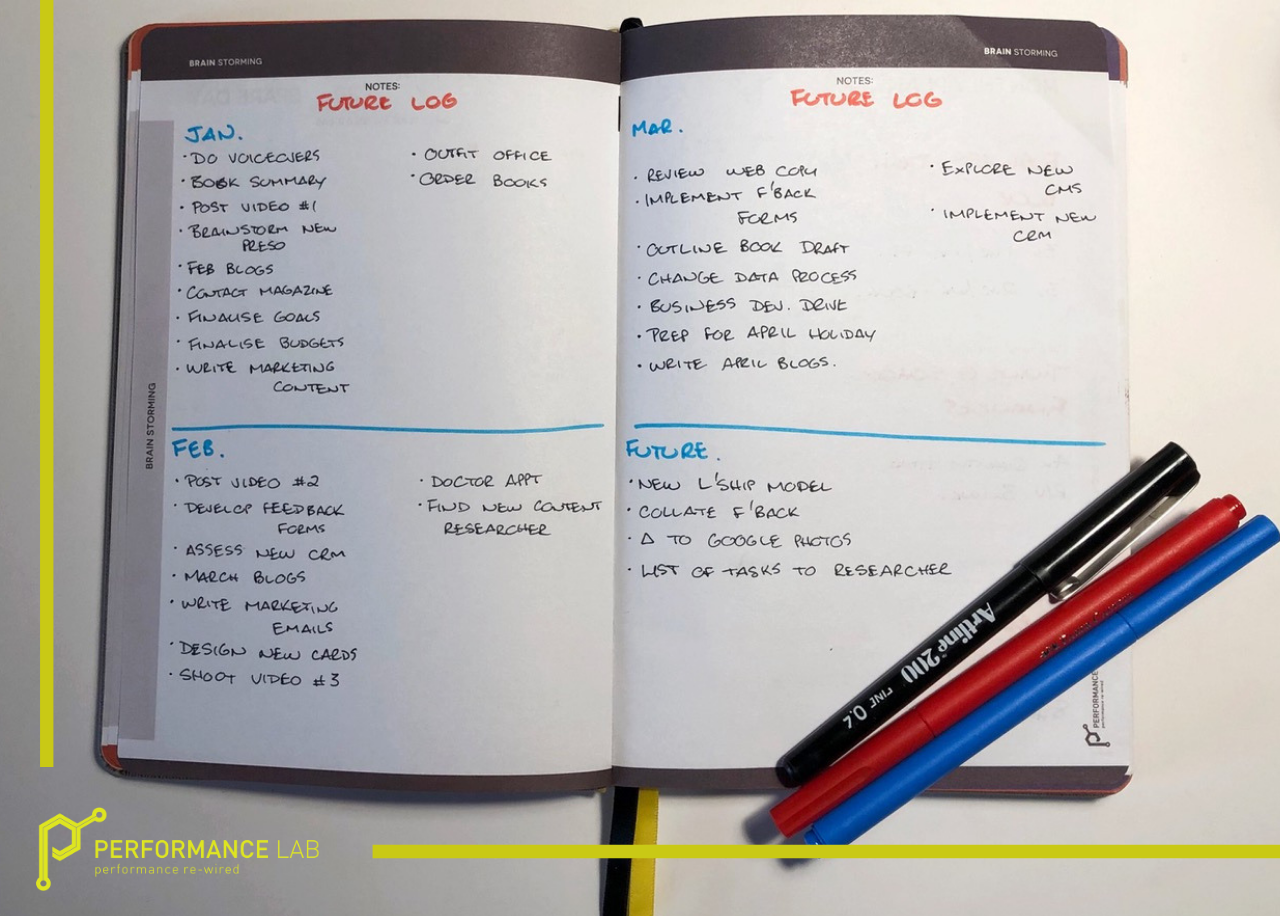 BRAIN STORMING
NOTES:
FUTURE LOG
JAN.
· DO VOICEOVERS
· BOOK SUMMARY
· POST VIDEO #1
· BRAINSTORM NEW
PRESO
· FEB BLOGS
· CONTACT MAGAZINE
· FINALISE GOALS
· FINALISE BUDGETS
· WRITE MARKETING
CONTENT
· OUTFIT OFFICE
· ORDER BOOKS
FEB.
· POST VIDEO #2
· DEVELOP FEEDBACK
FORMS
· ASSESS NEW CRM
· MARCH BLOGS
· WRITE MARKETING
EMAILS
· DESIGN NEW CARDS
· SHOOT VIDEO #3
· DOCTOR APPT
· FIND NEW CONTENT
RESEARCHER
BRAIN STORMING
BRAIN STORMING
NOTES:
FUTURE LOG
MAR.
· REVIEW WEB COPY
· IMPLEMENT F'BACK
FORMS
· OUTLINE BOOK DRAFT
· CHANGE DATA PROCESS
· BUSINESS DEV. DRIVE
· PREP FOR APRIL HOLIDAY
· WRITE APRIL BLOGS.
· EXPLORE NEW
CMS
· IMPLEMENT NEW
CRM
FUTURE.
· NEW L'SHIP MODEL
· COLLATE F'BACK
· Δ TO GOOGLE PHOTOS
· LIST OF TASKS TO RESEARCHER
Artline 200
FINE 0.4
PERFORMANCE
performance re-wired
PERFORMANCE LAB
performance re-wired